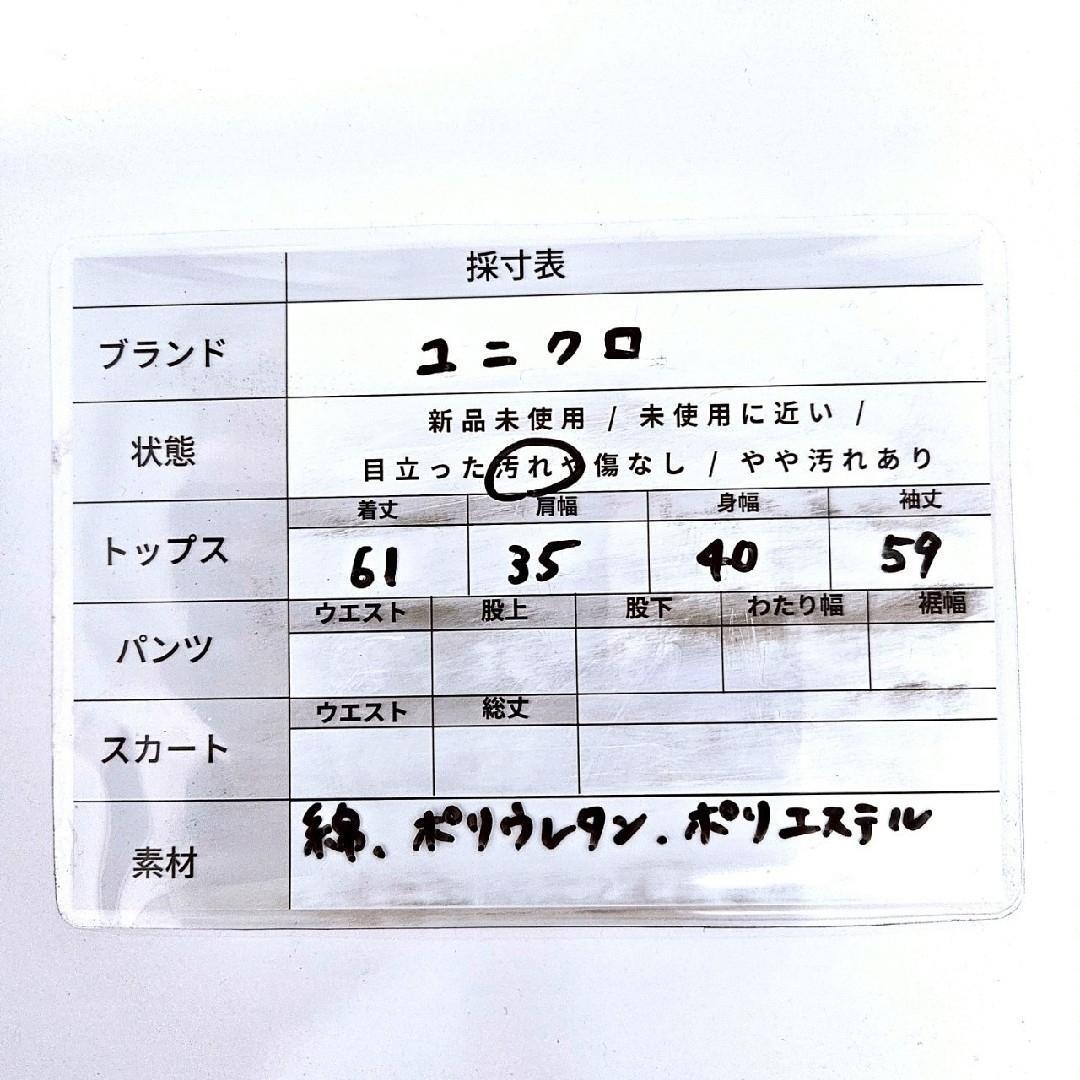 採寸表
ブランド
ユニクロ
状態
新品未使用 / 未使用に近い /
目立った汚れや傷なし / やや汚れあり
トップス
着丈 肩幅 身幅 袖丈
61 35 40 59
パンツ
ウエスト 股上 股下 わたり幅 裾幅
スカート
ウエスト 総丈
素材
綿、ポリウレタン、ポリエステル